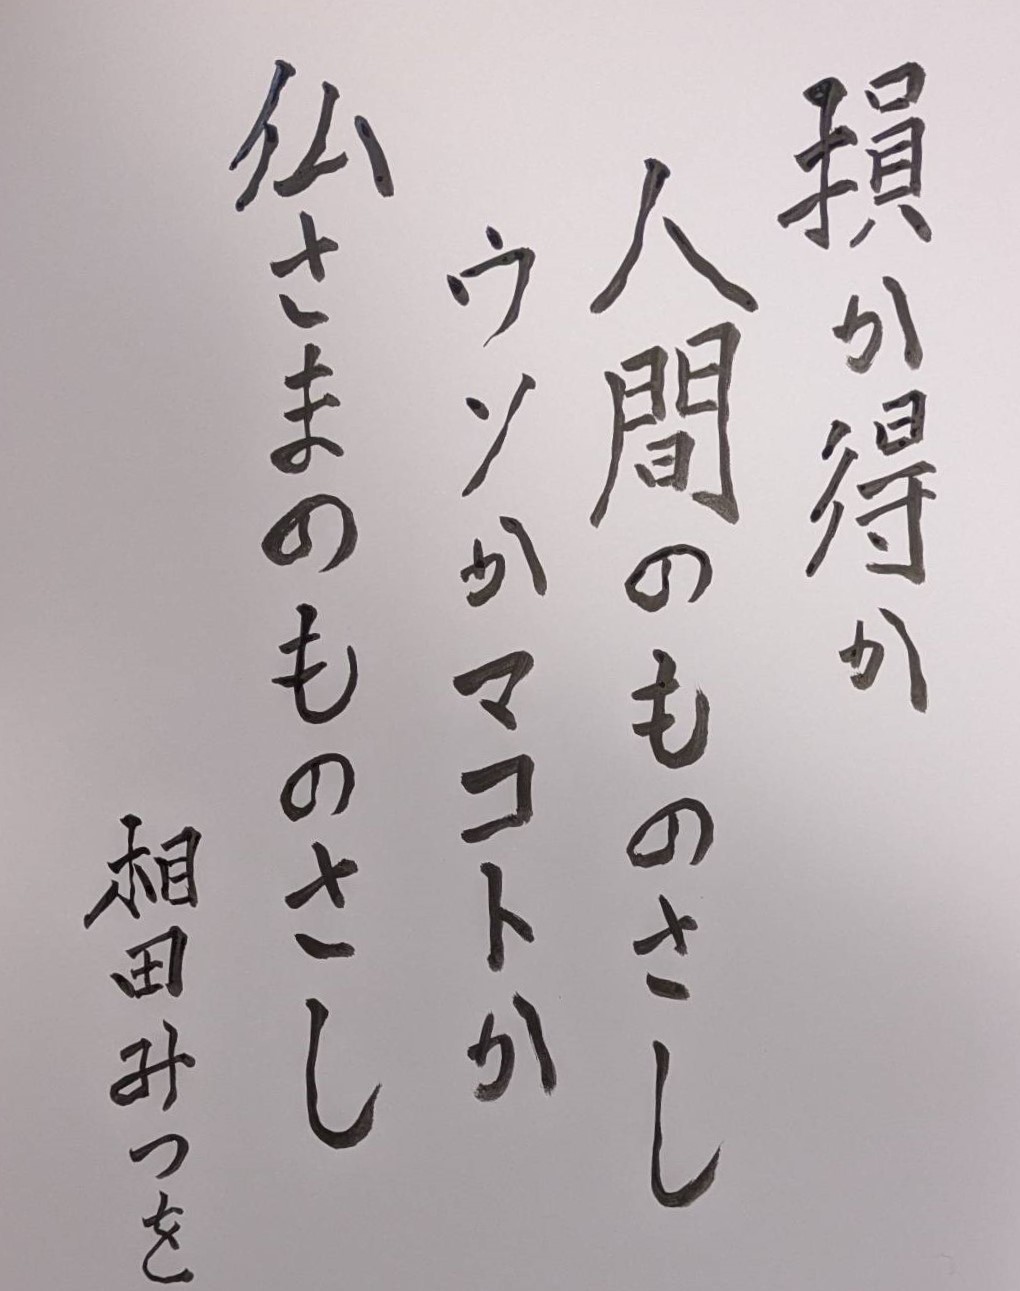 損か得か
人間のものさし
ウソかマコトか
仏さまのものさし
相田みつを